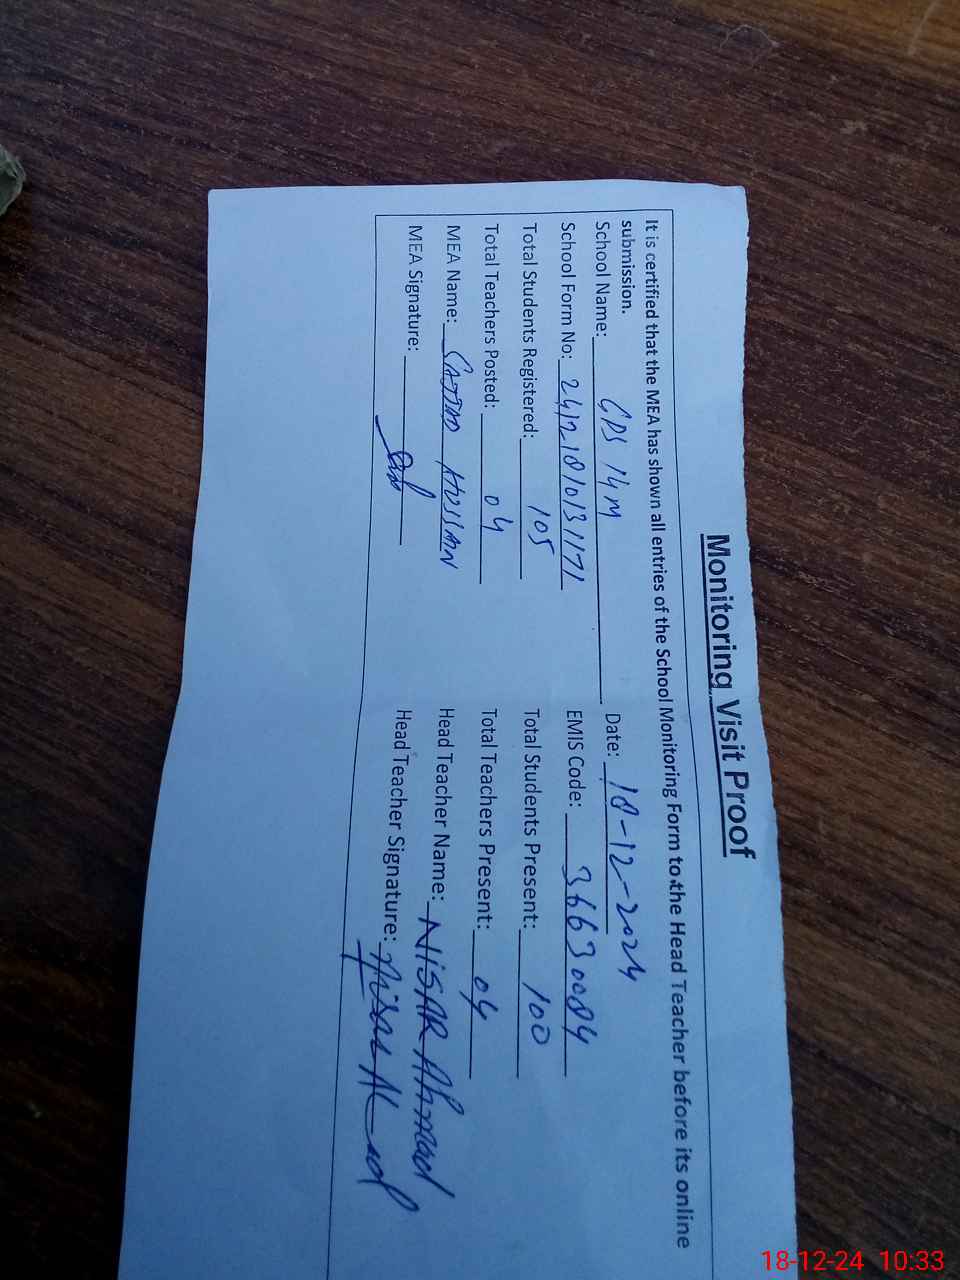 Monitoring Visit Proof
It is certified that the MEA has shown all entries of the School Monitoring Form to the Head Teacher before its online
submission.
School Name: GPS 14M Date: 18-12-2024
School Form No: 24121810131171 EMIS Code: 36630084
Total Students Registered: 105 Total Students Present: 100
Total Teachers Posted: 04 Total Teachers Present: 04
MEA Name: SAJJAD HUSSAN Head Teacher Name: NISAR Ahmad
MEA Signature: Head Teacher Signature: Nisar Ahmad
18-12-24 10:33